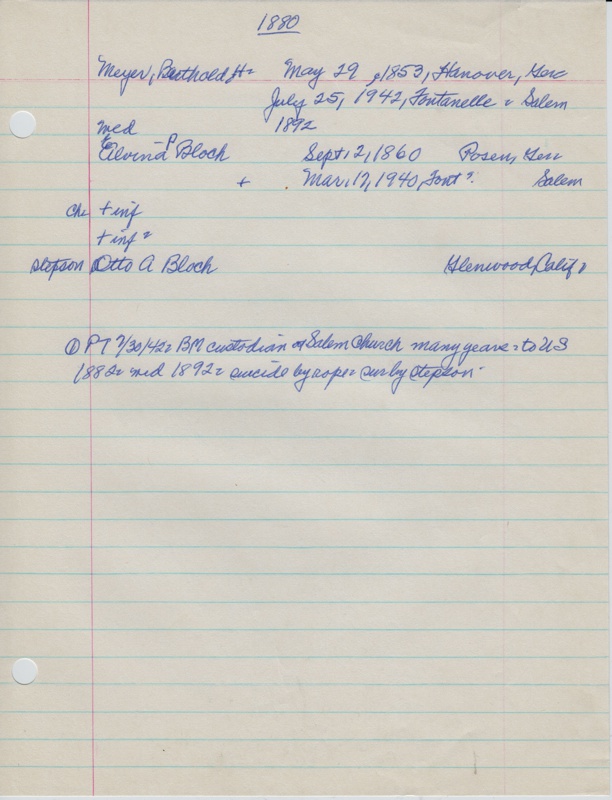 1880
Meyer, Berthold H= May 29, 1853, Hanover, Ger
July 25, 1942, Fontanelle = Salem
med 1892
Elvina P Bloch Sept. 12, 1860 Posen, Ger
+ Mar. 17, 1940, Font = Salem
ch + inf
+ inf =
stepson Otto A Bloch Glenwood, Calif =
① PT 7/30/42= BM custodian of Salem Church many years = to US
1882= med 1892= suicide by rope = sur by stepson -